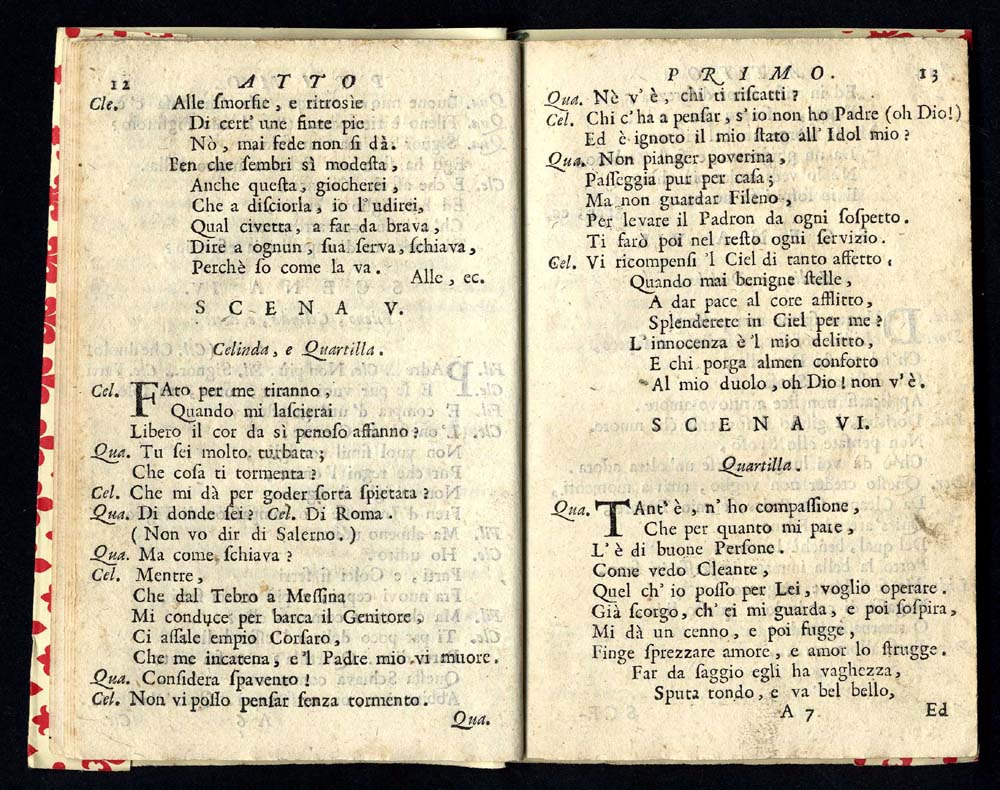 12 ATTO
Cle. Alle ſmorfie, e ritrosìe
Di cert' une finte pie
Nò, mai fede non ſi dà.
Ben che ſembri sì modeſta,
Anche queſta, giocherei,
Che a diſciorla, io l'udirei,
Qual civetta, a far da brava,
Dire a ognun, ſua ſerva, ſchiava,
Perchè ſo come la va.
Alle, ec.
SCENA V.
Celinda, e Quartilla.
Cel. FAto per me tiranno,
Quando mi laſcierai
Libero il cor da sì penoſo affanno?
Qua. Tu ſei molto turbata;
Che coſa ti tormenta?
Cel. Che mi dà per goder ſorta ſpietata?
Qua. Di donde ſei? Cel. Di Roma.
(Non vo dir di Salerno.)
Qua. Ma come ſchiava?
Cel. Mentre,
Che dal Tebro a Meſſina
Mi conduce per barca il Genitore,
Ci aſſale empio Corſaro,
Che me incatena, e 'l Padre mio vi muore.
Qua. Conſidera ſpavento!
Cel. Non vi poſſo penſar ſenza tormento.
Qua.
PRIMO. 13
Qua. Nè v'è, chi ti riſcatti?
Cel. Chi c'ha a penſar, s'io non ho Padre (oh Dio!)
Ed è ignoto il mio ſtato all' Idol mio?
Qua. Non pianger poverina,
Paſſeggia pur per caſa;
Ma non guardar Fileno,
Per levare il Padron da ogni ſoſpetto.
Ti farò poi nel reſto ogni ſervizio.
Cel. Vi ricompenſi 'l Ciel di tanto affetto.
Quando mai benigne ſtelle,
A dar pace al core afflitto,
Splenderete in Ciel per me?
L'innocenza è 'l mio delitto,
E chi porga almen conforto
Al mio duolo, oh Dio! non v'è.
SCENA VI.
Quartilla.
Qua. TAnt'è, n'ho compaſſione,
Che per quanto mi pare,
L'è di buone Perſone.
Come vedo Cleante,
Quel ch'io poſſo per Lei, voglio operare.
Già ſcorgo, ch'ei mi guarda, e poi ſoſpira,
Mi dà un cenno, e poi fugge,
Finge ſprezzare amore, e amor lo ſtrugge.
Far da ſaggio egli ha vaghezza,
Sputa tondo, e va bel bello,
A 7 Ed